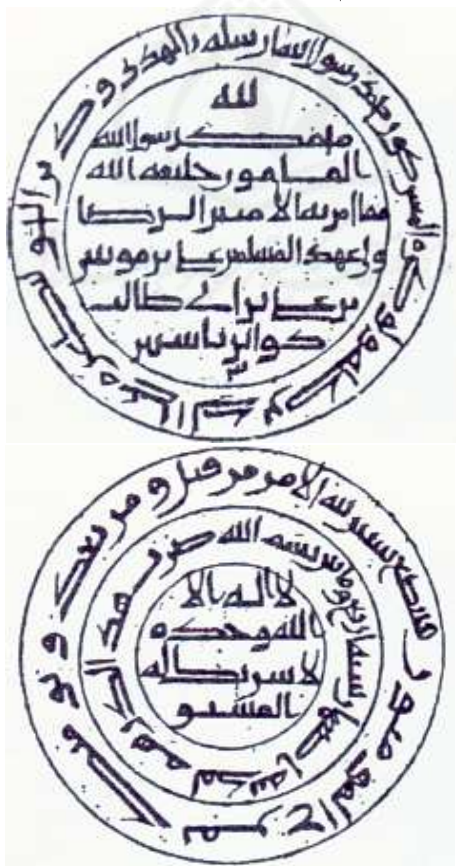 محمد رسول الله ارسله بالهدى ودين الحق ليظهره على الدين كله ولو كره المشركون
لله
محمد رسول الله
المامون خليفة الله
مما امر به الامير الرضا
ولي عهد المسلمين علي بن موسى
بن علي بن ابي طالب
ذو الرياستين
في بضع سنين لله الامر من قبل و من بعد و يومئذ يفرح المومنون
بسم الله ضرب هذا الدرهم بمدينة اصبهان سنة اربع ومائتين
لا اله الا
الله وحده
لا شريك له
المشرق